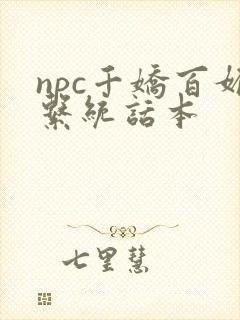 npc千嬌百媚
繫統話本
七里慧